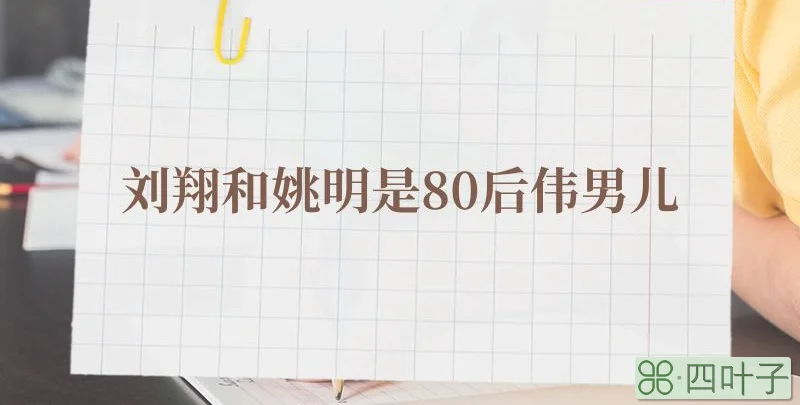 刘翔和姚明是80后伟男儿
四叶子